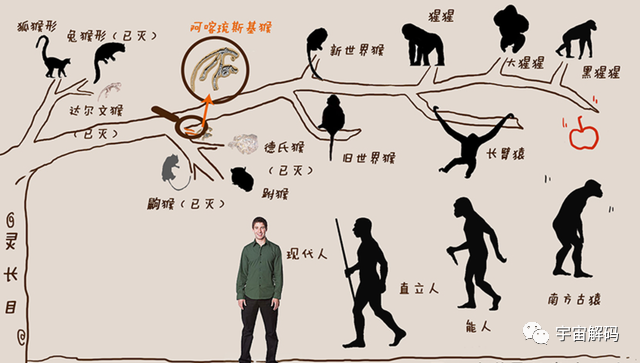 狐猴形
兔猴形（已灭）
阿喀琉斯基猴
新世界猴
猩猩
大猩猩
黑猩猩
达尔文猴
（已灭）
德氏猴
（已灭）
旧世界猴
长臂猿
鼩猴（已灭）
跗猴
灵长目
现代人
直立人
能人
南方古猿
宇宙解码